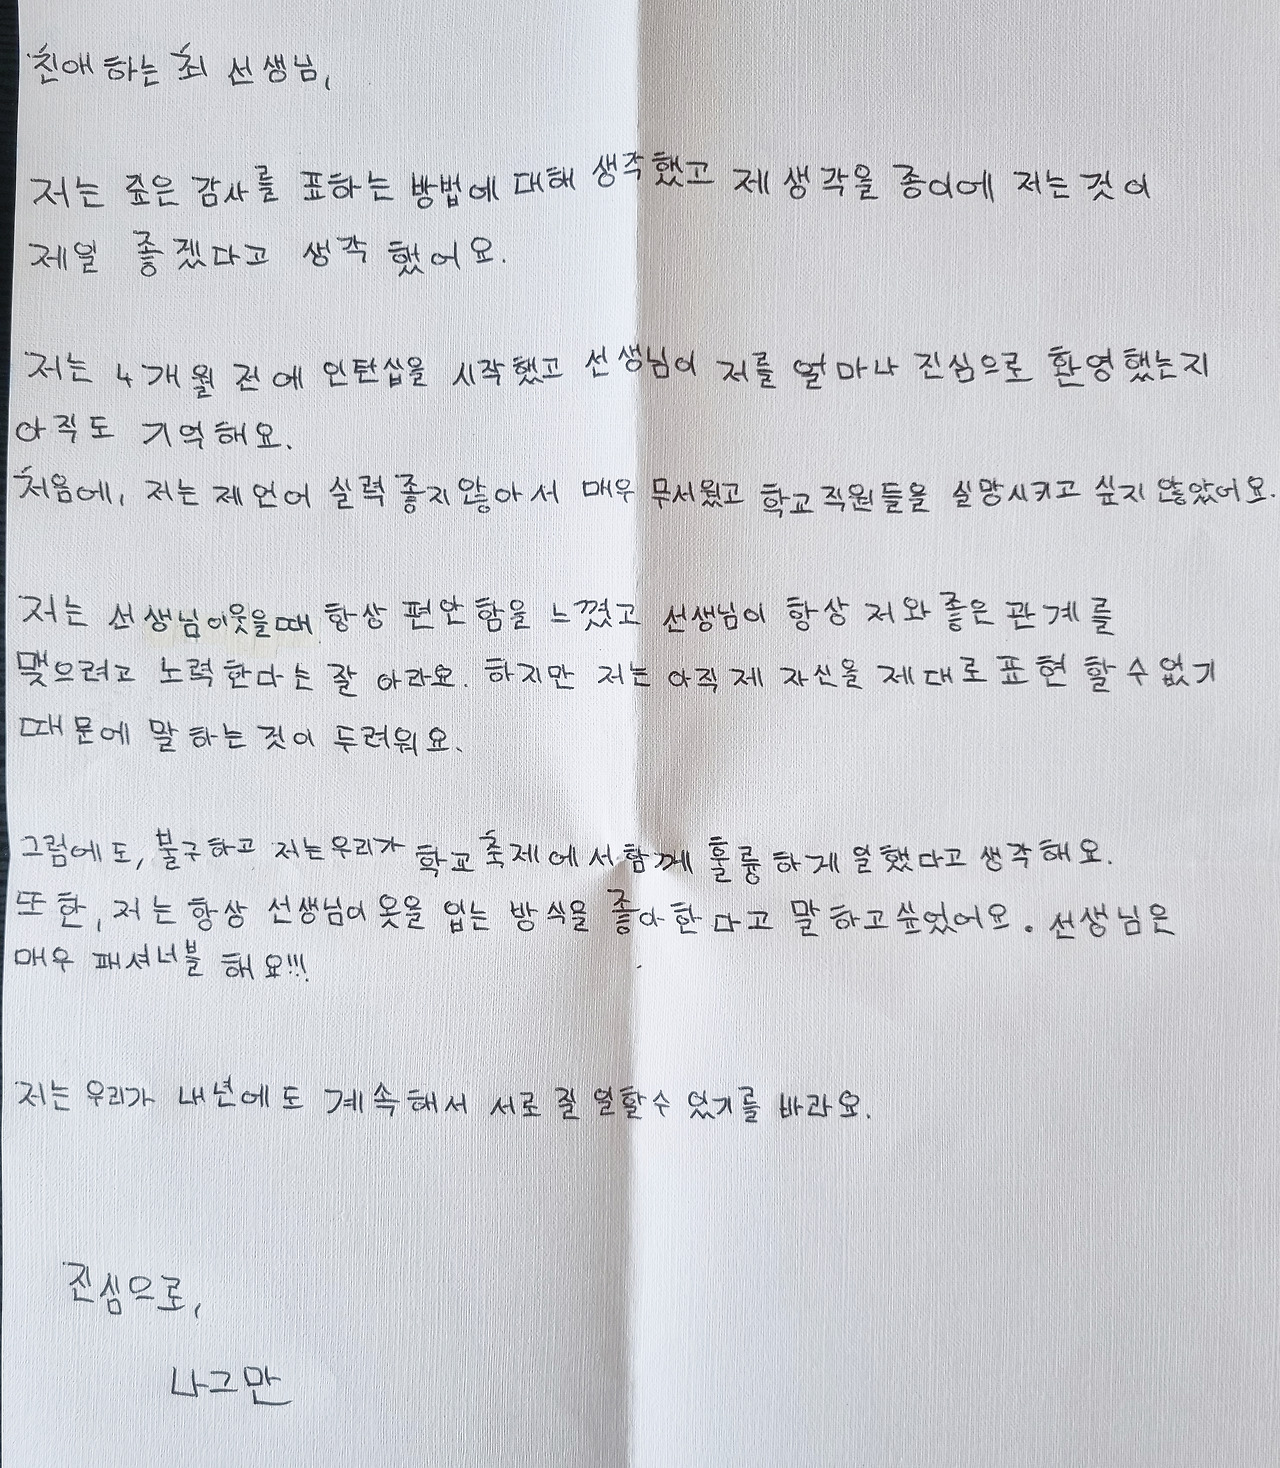 친애하는 최 선생님,
저는 깊은 감사를 표하는 방법에 대해 생각했고 제 생각을 종이에 저는것이
제일 좋겠다고 생각했어요.
저는 4개월 전에 인턴십을 시작했고 선생님이 저를 얼마나 진심으로 환영했는지
아직도 기억해요.
처음에, 저는 제 언어 실력 좋지않아서 매우 무서웠고 학교직원들을 실망시키고 싶지 않았어요.
저는 선생님이웃을때 항상 편안함을 느꼈고 선생님이 항상 저와 좋은 관계를
맺으려고 노력한다는 잘 아라요. 하지만 저는 아직 제 자신을 제대로 표현 할수없기
때문에 말하는 것이 두려워요.
그럼에도, 불구하고 저는우리가 학교 축제에서 함께 훌륭하게 일했다고 생각해요.
또한, 저는 항상 선생님이 옷을 입는 방식을 좋아한다고 말하고싶었어요. 선생님은
매우 패셔너블 해요!!!
저는 우리가 내년에도 계속해서 서로 잘 일할수 있기를 바라요.
진심으로,
나그만